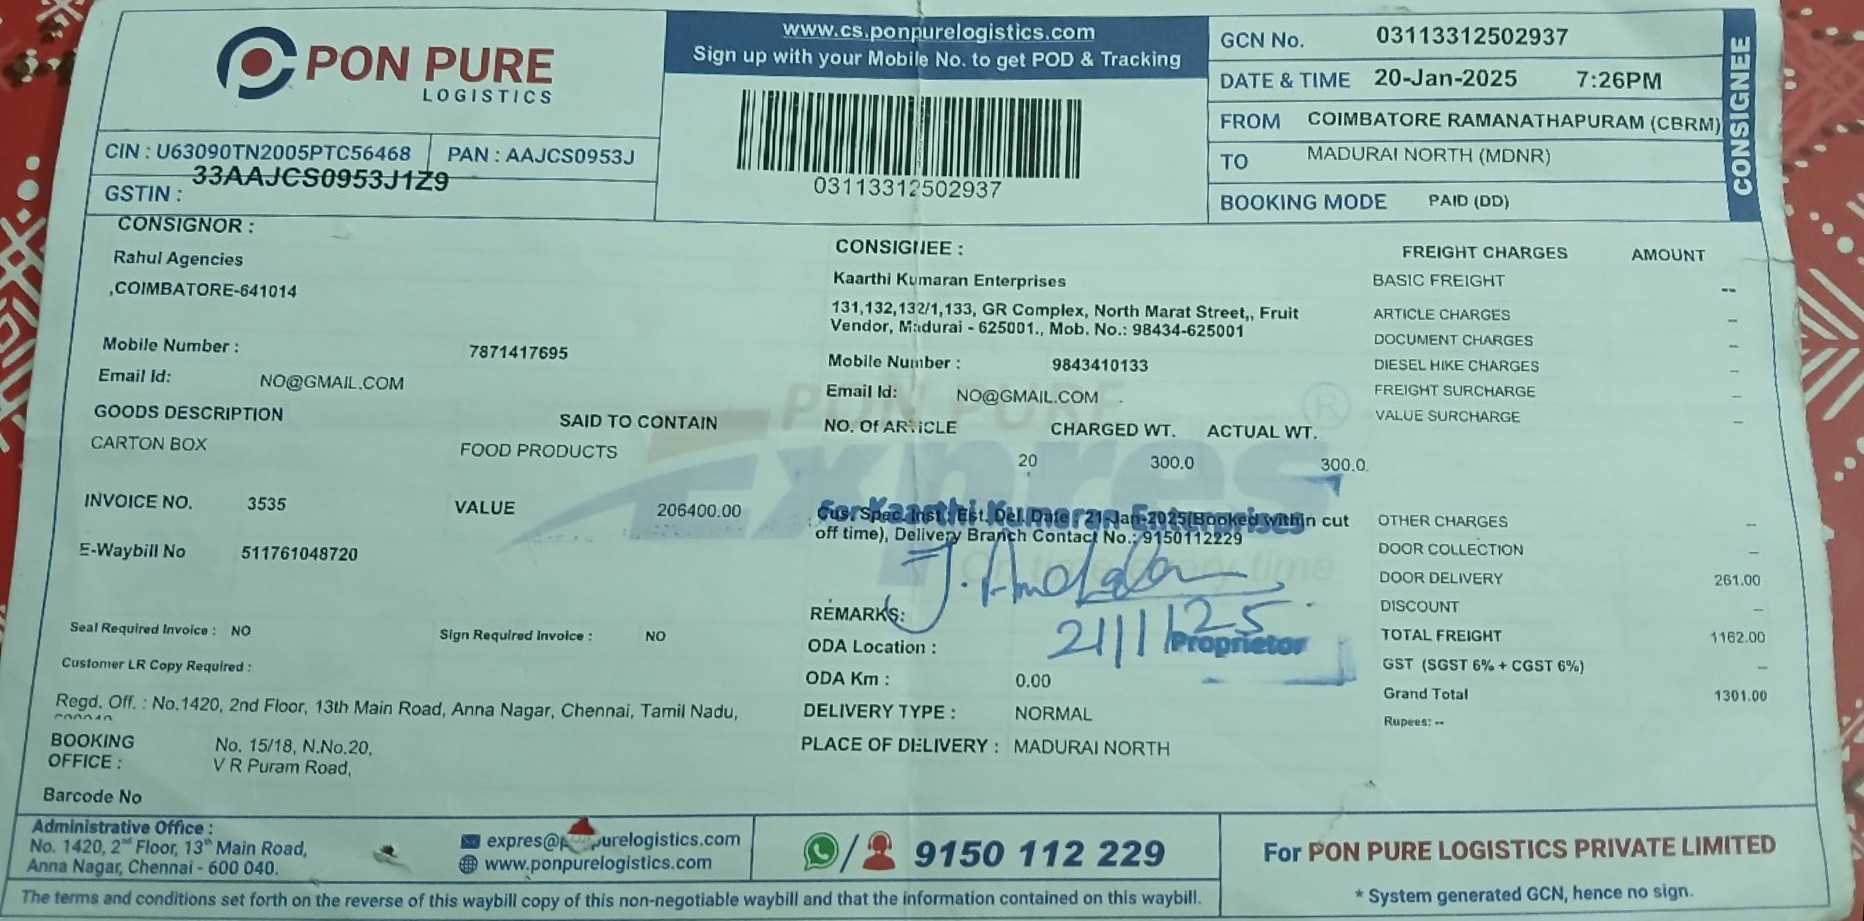 PON PURE
LOGISTICS
www.cs.ponpurelogistics.com
Sign up with your Mobile No. to get POD & Tracking
03113312502937
GCN No. 03113312502937
DATE & TIME 20-Jan-2025 7:26PM
FROM COIMBATORE RAMANATHAPURAM (CBRM)
TO MADURAI NORTH (MDNR)
BOOKING MODE PAID (DD)
CONSIGNEE
CIN : U63090TN2005PTC56468 PAN : AAJCS0953J
GSTIN : 33AAJCS0953J1Z9
CONSIGNOR :
Rahul Agencies
,COIMBATORE-641014
Mobile Number : 7871417695
Email Id: NO@GMAIL.COM
GOODS DESCRIPTION SAID TO CONTAIN
CARTON BOX FOOD PRODUCTS
INVOICE NO. 3535 VALUE 206400.00
E-Waybill No 511761048720
Seal Required Invoice : NO Sign Required Invoice : NO
Customer LR Copy Required :
Regd. Off. : No.1420, 2nd Floor, 13th Main Road, Anna Nagar, Chennai, Tamil Nadu,
BOOKING OFFICE : No. 15/18, N.No.20,
V R Puram Road,
Barcode No
CONSIGNEE :
Kaarthi Kumaran Enterprises
131,132,132/1,133, GR Complex, North Marat Street,, Fruit
Vendor, Madurai - 625001., Mob. No.: 98434-625001
Mobile Number : 9843410133
Email Id: NO@GMAIL.COM
NO. Of ARTICLE CHARGED WT. ACTUAL WT.
20 300.0 300.0
PON PURE
Expres
®
For Kaarthi Kumaran Enterprises
Cus. Spec. Inst. Est. Del. Date : 21-Jan-2025(Booked within cut
off time), Delivery Branch Contact No.: 9150112229
21/1/25
Proprietor
REMARKS:
ODA Location :
ODA Km : 0.00
DELIVERY TYPE : NORMAL
PLACE OF DELIVERY : MADURAI NORTH
FREIGHT CHARGES AMOUNT
BASIC FREIGHT --
ARTICLE CHARGES –
DOCUMENT CHARGES –
DIESEL HIKE CHARGES –
FREIGHT SURCHARGE –
VALUE SURCHARGE –
OTHER CHARGES –
DOOR COLLECTION –
DOOR DELIVERY 261.00
DISCOUNT –
TOTAL FREIGHT 1162.00
GST (SGST 6% + CGST 6%) –
Grand Total 1301.00
Rupees: --
Administrative Office :
No. 1420, 2nd Floor, 13th Main Road,
Anna Nagar, Chennai - 600 040.
www.ponpurelogistics.com
9150 112 229
For PON PURE LOGISTICS PRIVATE LIMITED
* System generated GCN, hence no sign.
The terms and conditions set forth on the reverse of this waybill copy of this non-negotiable waybill and that the information contained on this waybill.